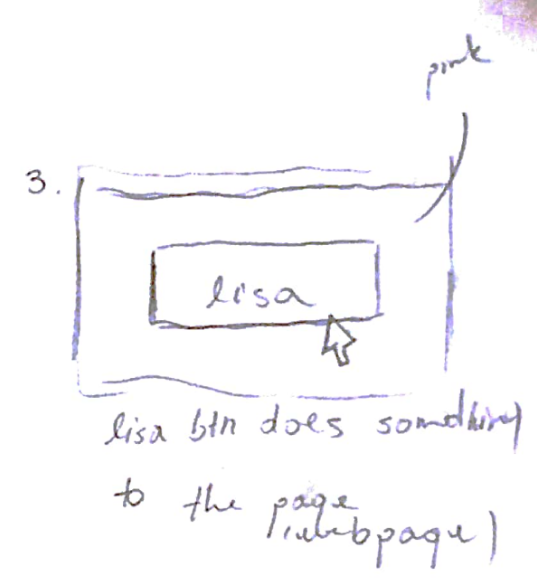 pink
3.
lisa
lisa btn does something
to the page
(webpage)